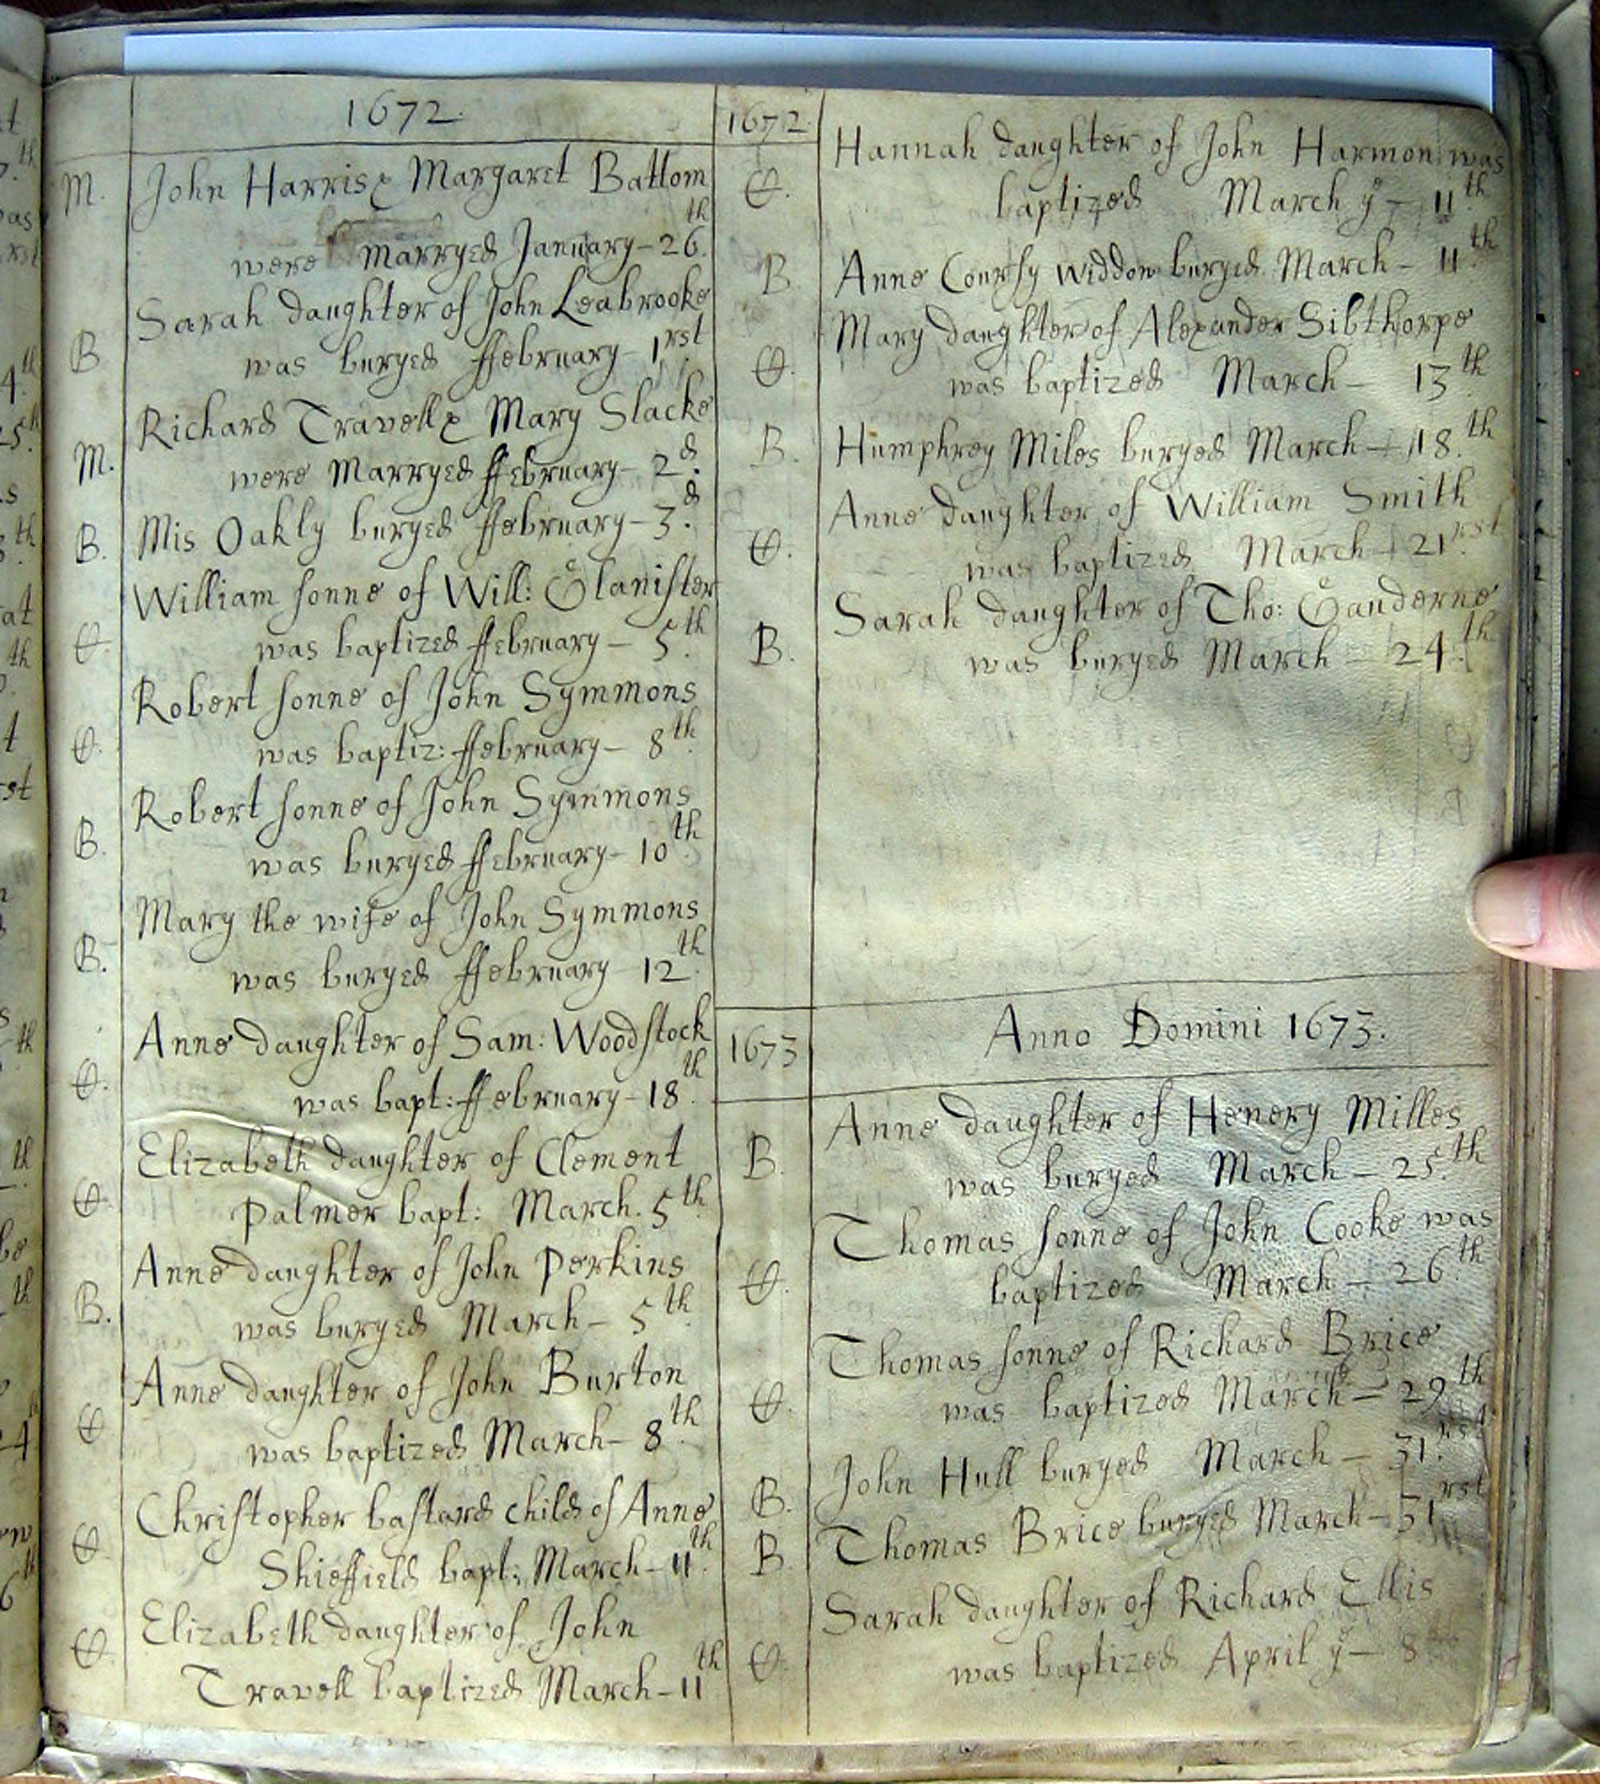 1672.
M. John Harris & Margaret Battom
were Marryed January - 26.th
Sarah daughter of John Leabrooke
B was buryed ffebruary 1rst
Richard Travell & Mary Slacke
M. were Marryed ffebruary - 2.d
B. Mis Oakly buryed ffebruary - 3.d
William sonne of Will: Glanister
C. was baptized ffebruary - 5th
Robert sonne of John Symmons
C. was baptiz: ffebruary - 8th
Robert sonne of John Symmons
B. was buryed ffebruary - 10th
Mary the wife of John Symmons
B. was buryed ffebruary 12th
Anne daughter of Sam: Woodstock
C. was bapt: ffebruary - 18th
Elizabeth daughter of Clement
C. Palmer bapt: March. 5th
Anne daughter of John Perkins
B. was buryed March - 5th
Anne daughter of John Burton
C was baptized March - 8th
Christopher bastard child of Anne
C. Shieffield bapt: March - 11th
Elizabeth daughter of John
C. Travell baptized March - 11th
1672
Hannah daughter of John Harmon was
C. baptized March ye - 11th
B. Anne Coursy widdow buryed March - 11th
Mary daughter of Alexander Sibthorpe
C. was baptized March - 13th
B. Humphrey Miles buryed March - 18.th
Anne daughter of William Smith
C. was baptized March - 21rst
Sarah daughter of Tho: Gauderne
B. was buryed March - 24.th
1673 Anno Domini 1673.
Anne daughter of Henery Milles
B. was buryed March - 25.th
Thomas sonne of John Cooke was
C. baptized March - 26th
Thomas sonne of Richard Brice
C. was baptized March - 29th
B. John Hull buryed March - 31.rst
B. Thomas Brice buryed March - 31rst
Sarah daughter of Richard Ellis
C. was baptized April ye - 8